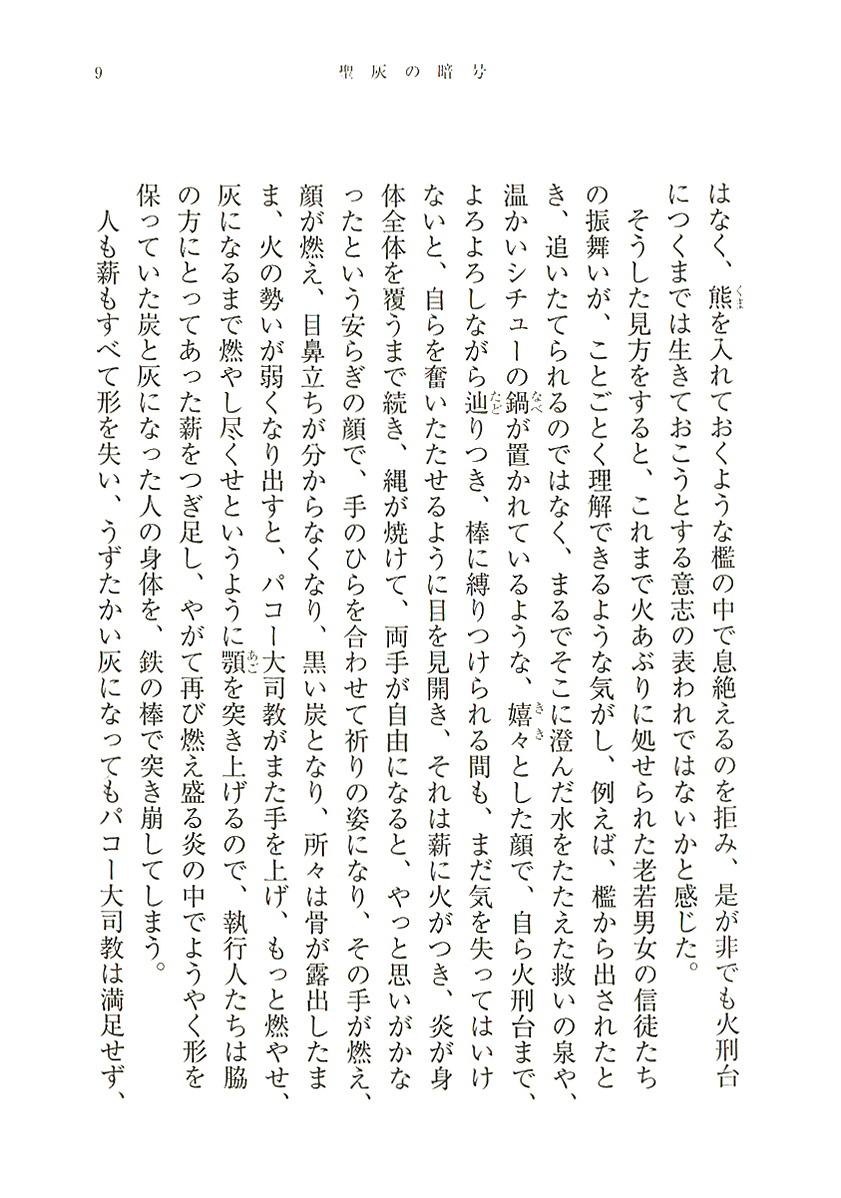 9
聖灰の暗号
はなく、熊を入れておくような檻の中で息絶えるのを拒み、是が非でも火刑台
につくまでは生きておこうとする意志の表われではないかと感じた。
そうした見方をすると、これまで火あぶりに処せられた老若男女の信徒たち
の振舞いが、ことごとく理解できるような気がし、例えば、檻から出されたと
き、追いたてられるのではなく、まるでそこに澄んだ水をたたえた救いの泉や、
温かいシチューの鍋が置かれているような、嬉々とした顔で、自ら火刑台まで、
よろよろしながら辿りつき、棒に縛りつけられる間も、まだ気を失ってはいけ
ないと、自らを奮いたたせるように目を見開き、それは薪に火がつき、炎が身
体全体を覆うまで続き、縄が焼けて、両手が自由になると、やっと思いがかな
ったという安らぎの顔で、手のひらを合わせて祈りの姿になり、その手が燃え、
顔が燃え、目鼻立ちが分からなくなり、黒い炭となり、所々は骨が露出したま
ま、火の勢いが弱くなり出すと、パコー大司教がまた手を上げ、もっと燃やせ、
灰になるまで燃やし尽くせというように顎を突き上げるので、執行人たちは脇
の方にとってあった薪をつぎ足し、やがて再び燃え盛る炎の中でようやく形を
保っていた炭と灰になった人の身体を、鉄の棒で突き崩してしまう。
人も薪もすべて形を失い、うずたかい灰になってもパコー大司教は満足せず、
くま
なべ
きき
たど
あご